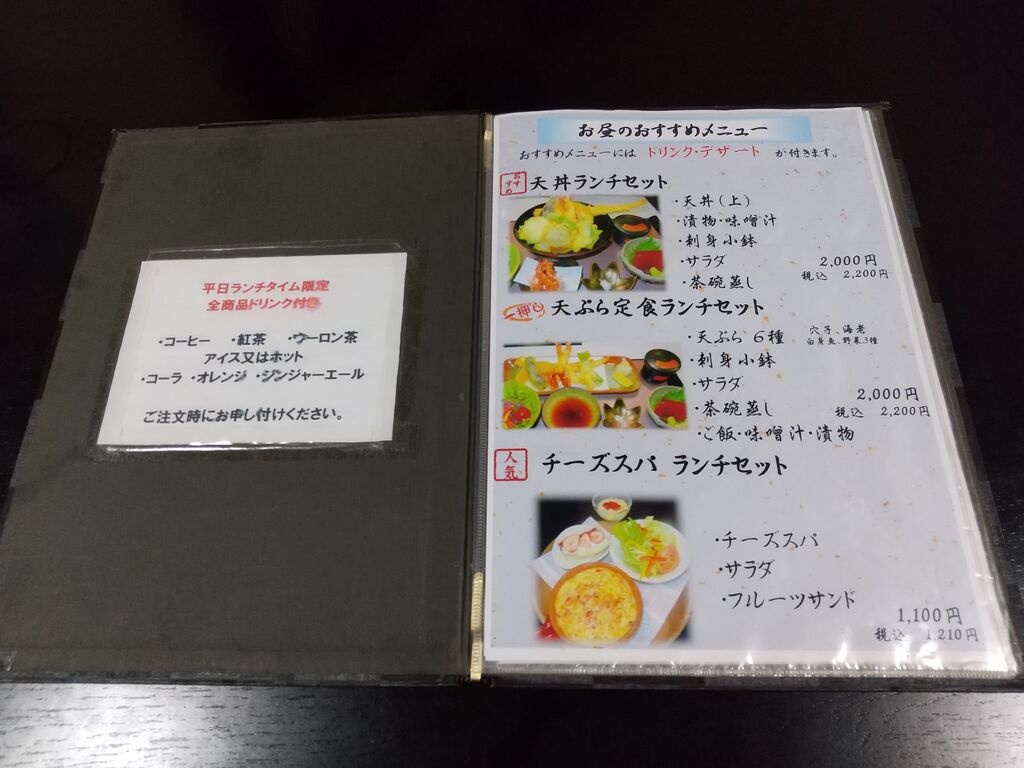 平日ランチタイム限定
全商品ドリンク付き
・コーヒー ・紅茶 ・ウーロン茶
アイス又はホット
・コーラ ・オレンジ ・ジンジャーエール
ご注文時にお申し付けください。
お昼のおすすめメニュー
おすすめメニューには ドリンク・デザート が付きます。
おすすめ 天丼ランチセット
・天丼(上)
・漬物・味噌汁
・刺身小鉢
・サラダ 2,000円
税込 2,200円
・茶碗蒸し
一押し 天ぷら定食ランチセット
・天ぷら 6種 穴子、海老
白身魚、野菜3種
・刺身小鉢
・サラダ
2,000円
・茶碗蒸し 税込 2,200円
・ご飯・味噌汁・漬物
人気 チーズスパ ランチセット
・チーズスパ
・サラダ
・フルーツサンド
1,100円
税込 1,210円